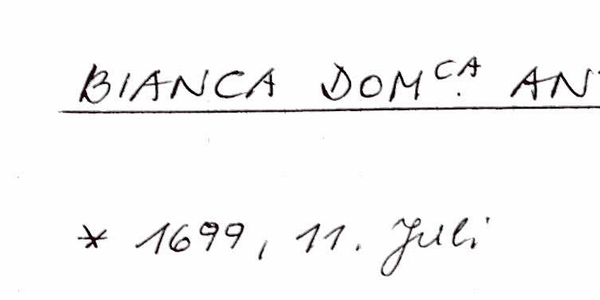 BIANCA DOM.CA AN
* 1699, 11. Juli